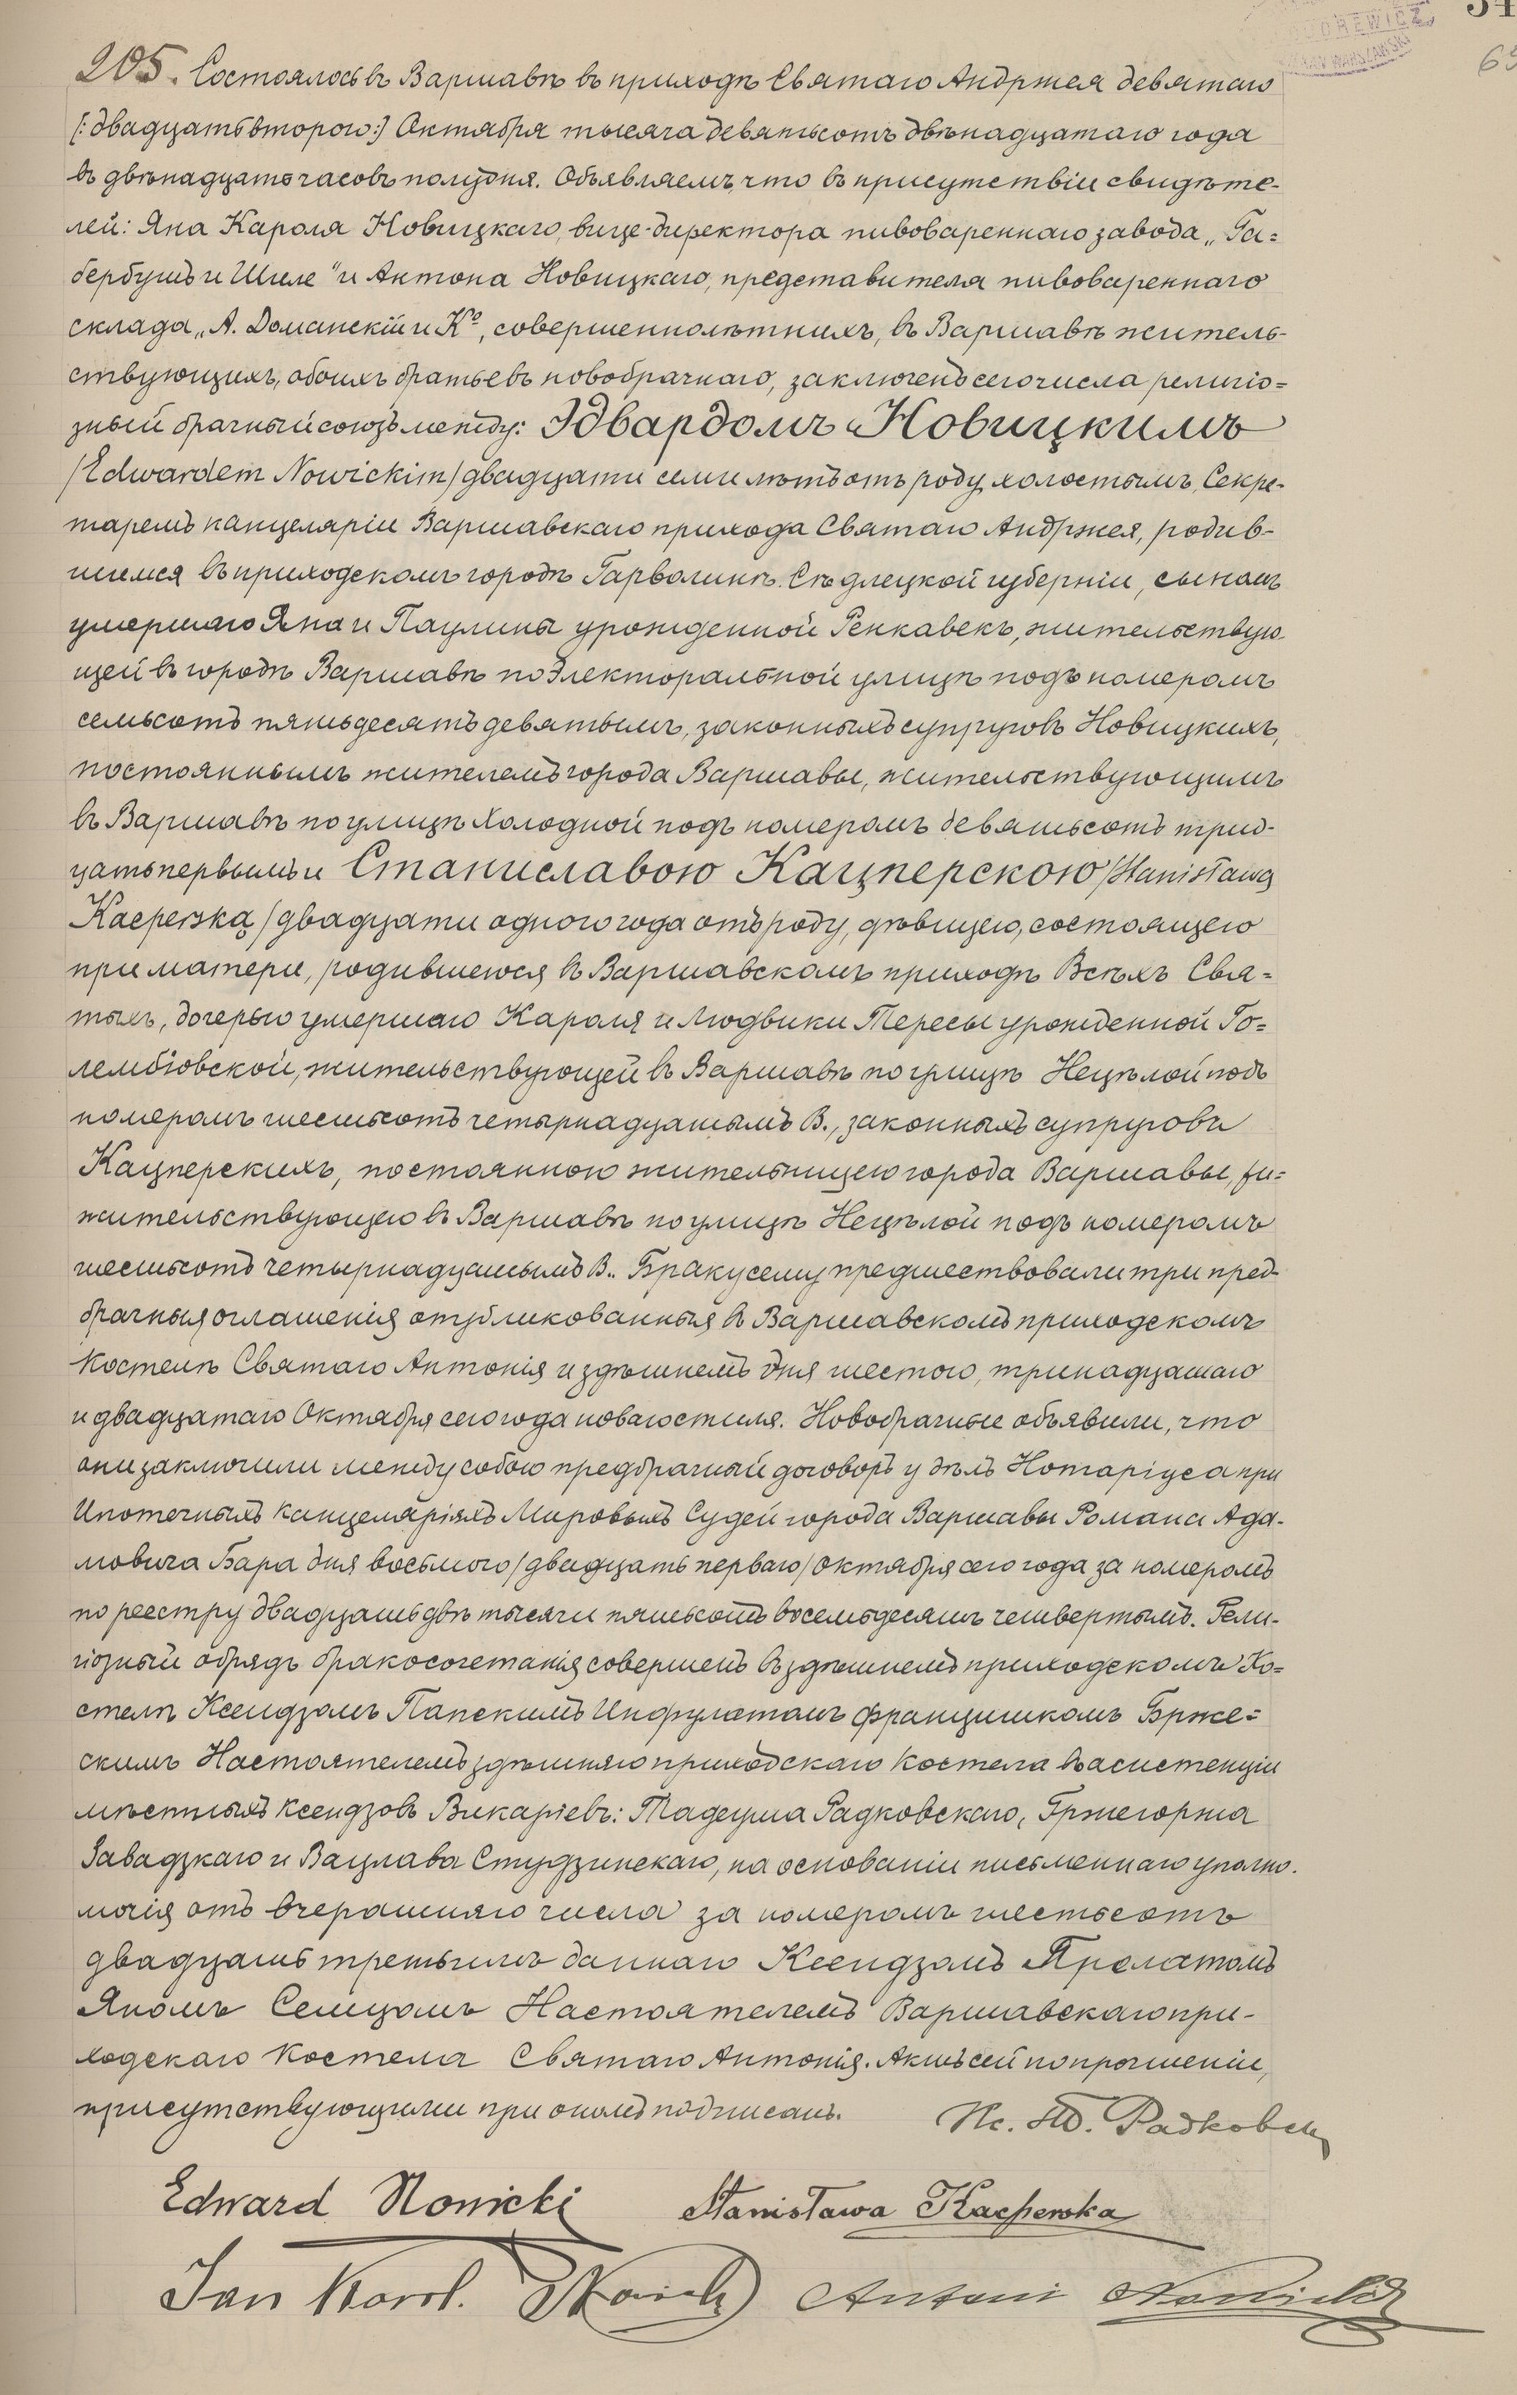 54
205. Состоялось въ Варшавѣ въ приходѣ Святаго Андржея девятаго
[: двадцать второго :] Октября тысяча девятьсотъ двѣнадцатаго года
въ двѣнадцать часовъ полудня. Объявляемъ, что въ присутствіи свидѣте-
лей: Яна Кароля Новицкаго, вице-директора пивовареннаго завода „Га=
бербушъ и Шиле" и Антона Новицкаго, представителя пивовареннаго
склада „А. Доманскій и Кº, совершеннолѣтнихъ, въ Варшавѣ житель-
ствующихъ, обоихъ братьевъ новобрачнаго, заключенъ сего числа религіо=
зный брачный союзъ между: Эдвардомъ Новицкимъ
/Edwardem Nowickim/ двадцати семи лѣтъ отъ роду, холостымъ, Секре-
таремъ канцеляріи Варшавскаго прихода Святаго Андржея, родив-
шимся въ приходскомъ городѣ Гарволинѣ Сѣдлецкой губерніи, сыномъ
умершаго Яна и Паулины урожденной Реккавекъ, жительствую-
щей въ городѣ Варшавѣ по Электоральной улицѣ подъ номеромъ
семьсотъ пятьдесятъ девятымъ, законныхъ супруговъ Новицкихъ,
постояннымъ жителемъ города Варшавы, жительствующимъ
въ Варшавѣ по улицѣ Холодной подъ номеромъ девятьсотъ трид-
цать первымъ и Станиславою Кацперскою /Stanisławą
Kacperską/ двадцати одного года отъ роду, дѣвицею, состоящею
при матери, родившеюся въ Варшавскомъ приходѣ Всѣхъ Свя=
тыхъ, дочерью умершаго Кароля и Людвики Тересы урожденной Го=
лембіовской, жительствующей въ Варшавѣ по улицѣ Нецѣлой подъ
номеромъ шестьсотъ четырнадцатымъ В., законныхъ супруговъ
Кацперскихъ, постоянною жительницею города Варшавы,
жительствующею въ Варшавѣ по улицѣ Нецѣлой подъ номеромъ
шестьсотъ четырнадцатымъ В.. Браку сему предшествовали три пред-
брачныя оглашенія опубликованныя въ Варшавскомъ приходскомъ
Костелѣ Святаго Антонія и здѣшнемъ дня шестого, тринадцатаго
и двадцатаго Октября сего года новаго стиля. Новобрачные объявили, что
они заключили между собою предбрачный договоръ у дѣлъ Нотаріуса при
Ипотечныхъ канцеляріяхъ Мировыхъ Судей города Варшавы Романа Ада-
мовича Бара дня восьмого /двадцать перваго/ Октября сего года за номеромъ
по реестру двадцать двѣ тысячи пятьсотъ восемьдесятъ четвертымъ. Рели-
гіозный обрядъ бракосочетанія совершенъ въ здѣшнемъ приходскомъ Ко=
стелѣ Ксендзомъ Папскимъ Инфулатомъ Францишкомъ Брже=
скимъ Настоятелемъ здѣшняго приходскаго костела въ асистенціи
мѣстныхъ Ксендзовъ Викаріевъ: Тадеуша Радковскаго, Гржегоржа
Завадзкаго и Вацлава Студзинскаго, на основаніи письменнаго уполно-
мочія отъ вчерашняго числа за номеромъ шестьсотъ
двадцать третьимъ даннаго Ксендзомъ Прелатомъ
Яномъ Семцомъ Настоятелемъ Варшавскаго при-
ходскаго Костела Святаго Антонія. Актъ сей по прочтеніи,
присутствующими при ономъ подписанъ.
Кс. Ѳ. Радковск
Edward Nowicki Stanisława Kacperska
Jan Karol Nowicki Antoni Nowicki